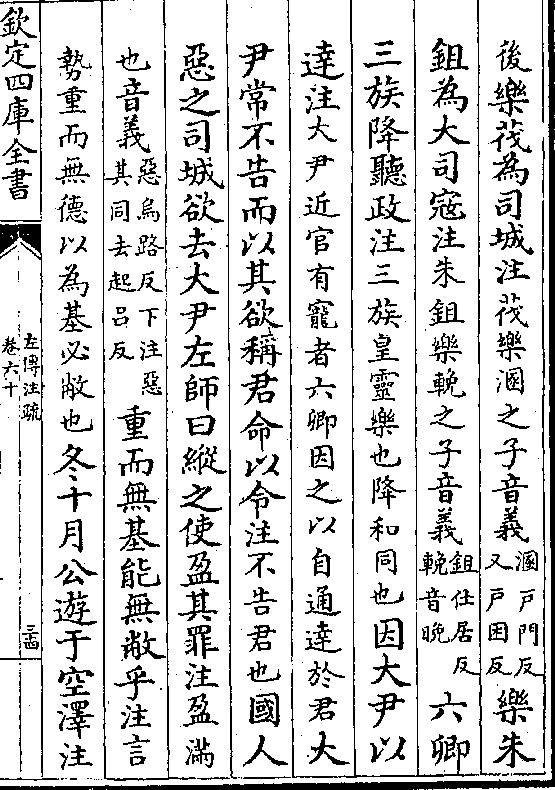 後樂茷為司城注茷樂溷之子音義溷戶門反又戶困反樂朱
鉏為大司寇注朱鉏樂輓之子音義鉏仕居反輓音晚六卿
三族降聽政注三族皇靈樂也降和同也因大尹以
達注大尹近官有寵者六卿因之以自通達於君大
尹常不告而以其欲稱君命以令注不告君也國人
惡之司城欲去大尹左師曰縱之使盈其罪注盈滿
也音義惡烏路反下注惡其同去起呂反重而無基能無敝乎注言
勢重而無德以為基必敝也冬十月公遊于空澤注
欽定四庫全書
左傳注疏
卷六十
三四